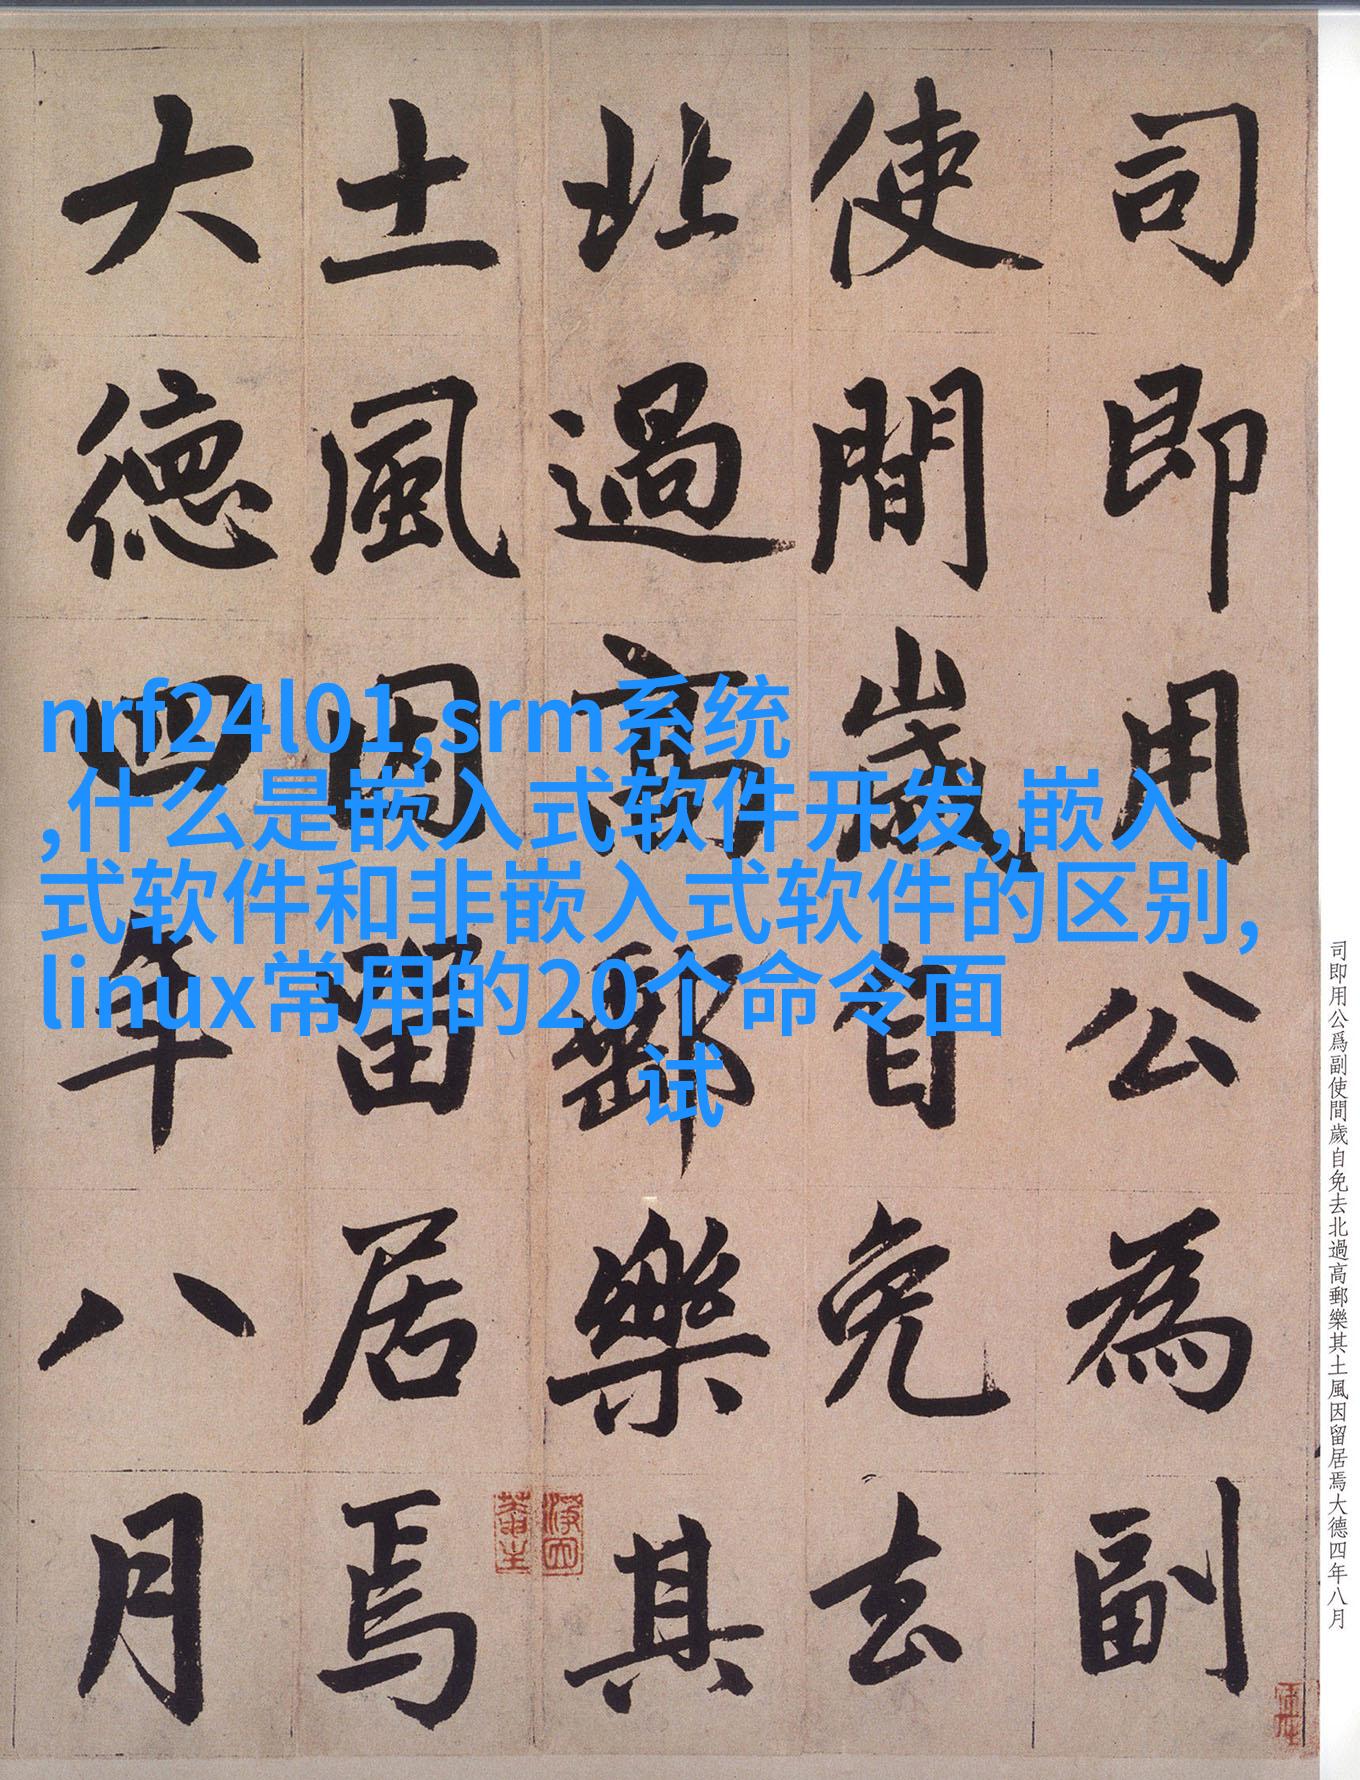 司即用公為副
使間歲自免去
北過高郵樂其
土風因留居焉
大德四年八月
nrf24l01,srm系统
,什么是嵌入式软件开发,嵌入
式软件和非嵌入式软件的区别,
linux常用的20个命令面
试
司即用公爲副使間歲自免去北過高郵樂其土風因留居焉大德四年八月